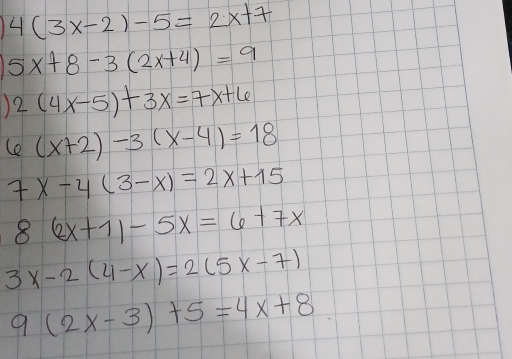 )4(3x-2)-5=2x+7
)5x+8-3(2x+4)=9
)2(4x-5)+3x=7x+6
6(x+2)-3(x-4)=18
7x-4(3-x)=2x+15
8(2x+1)-5x=6+7x
3x-2(4-x)=2(5x-7)
9(2x-3)+5=4x+8